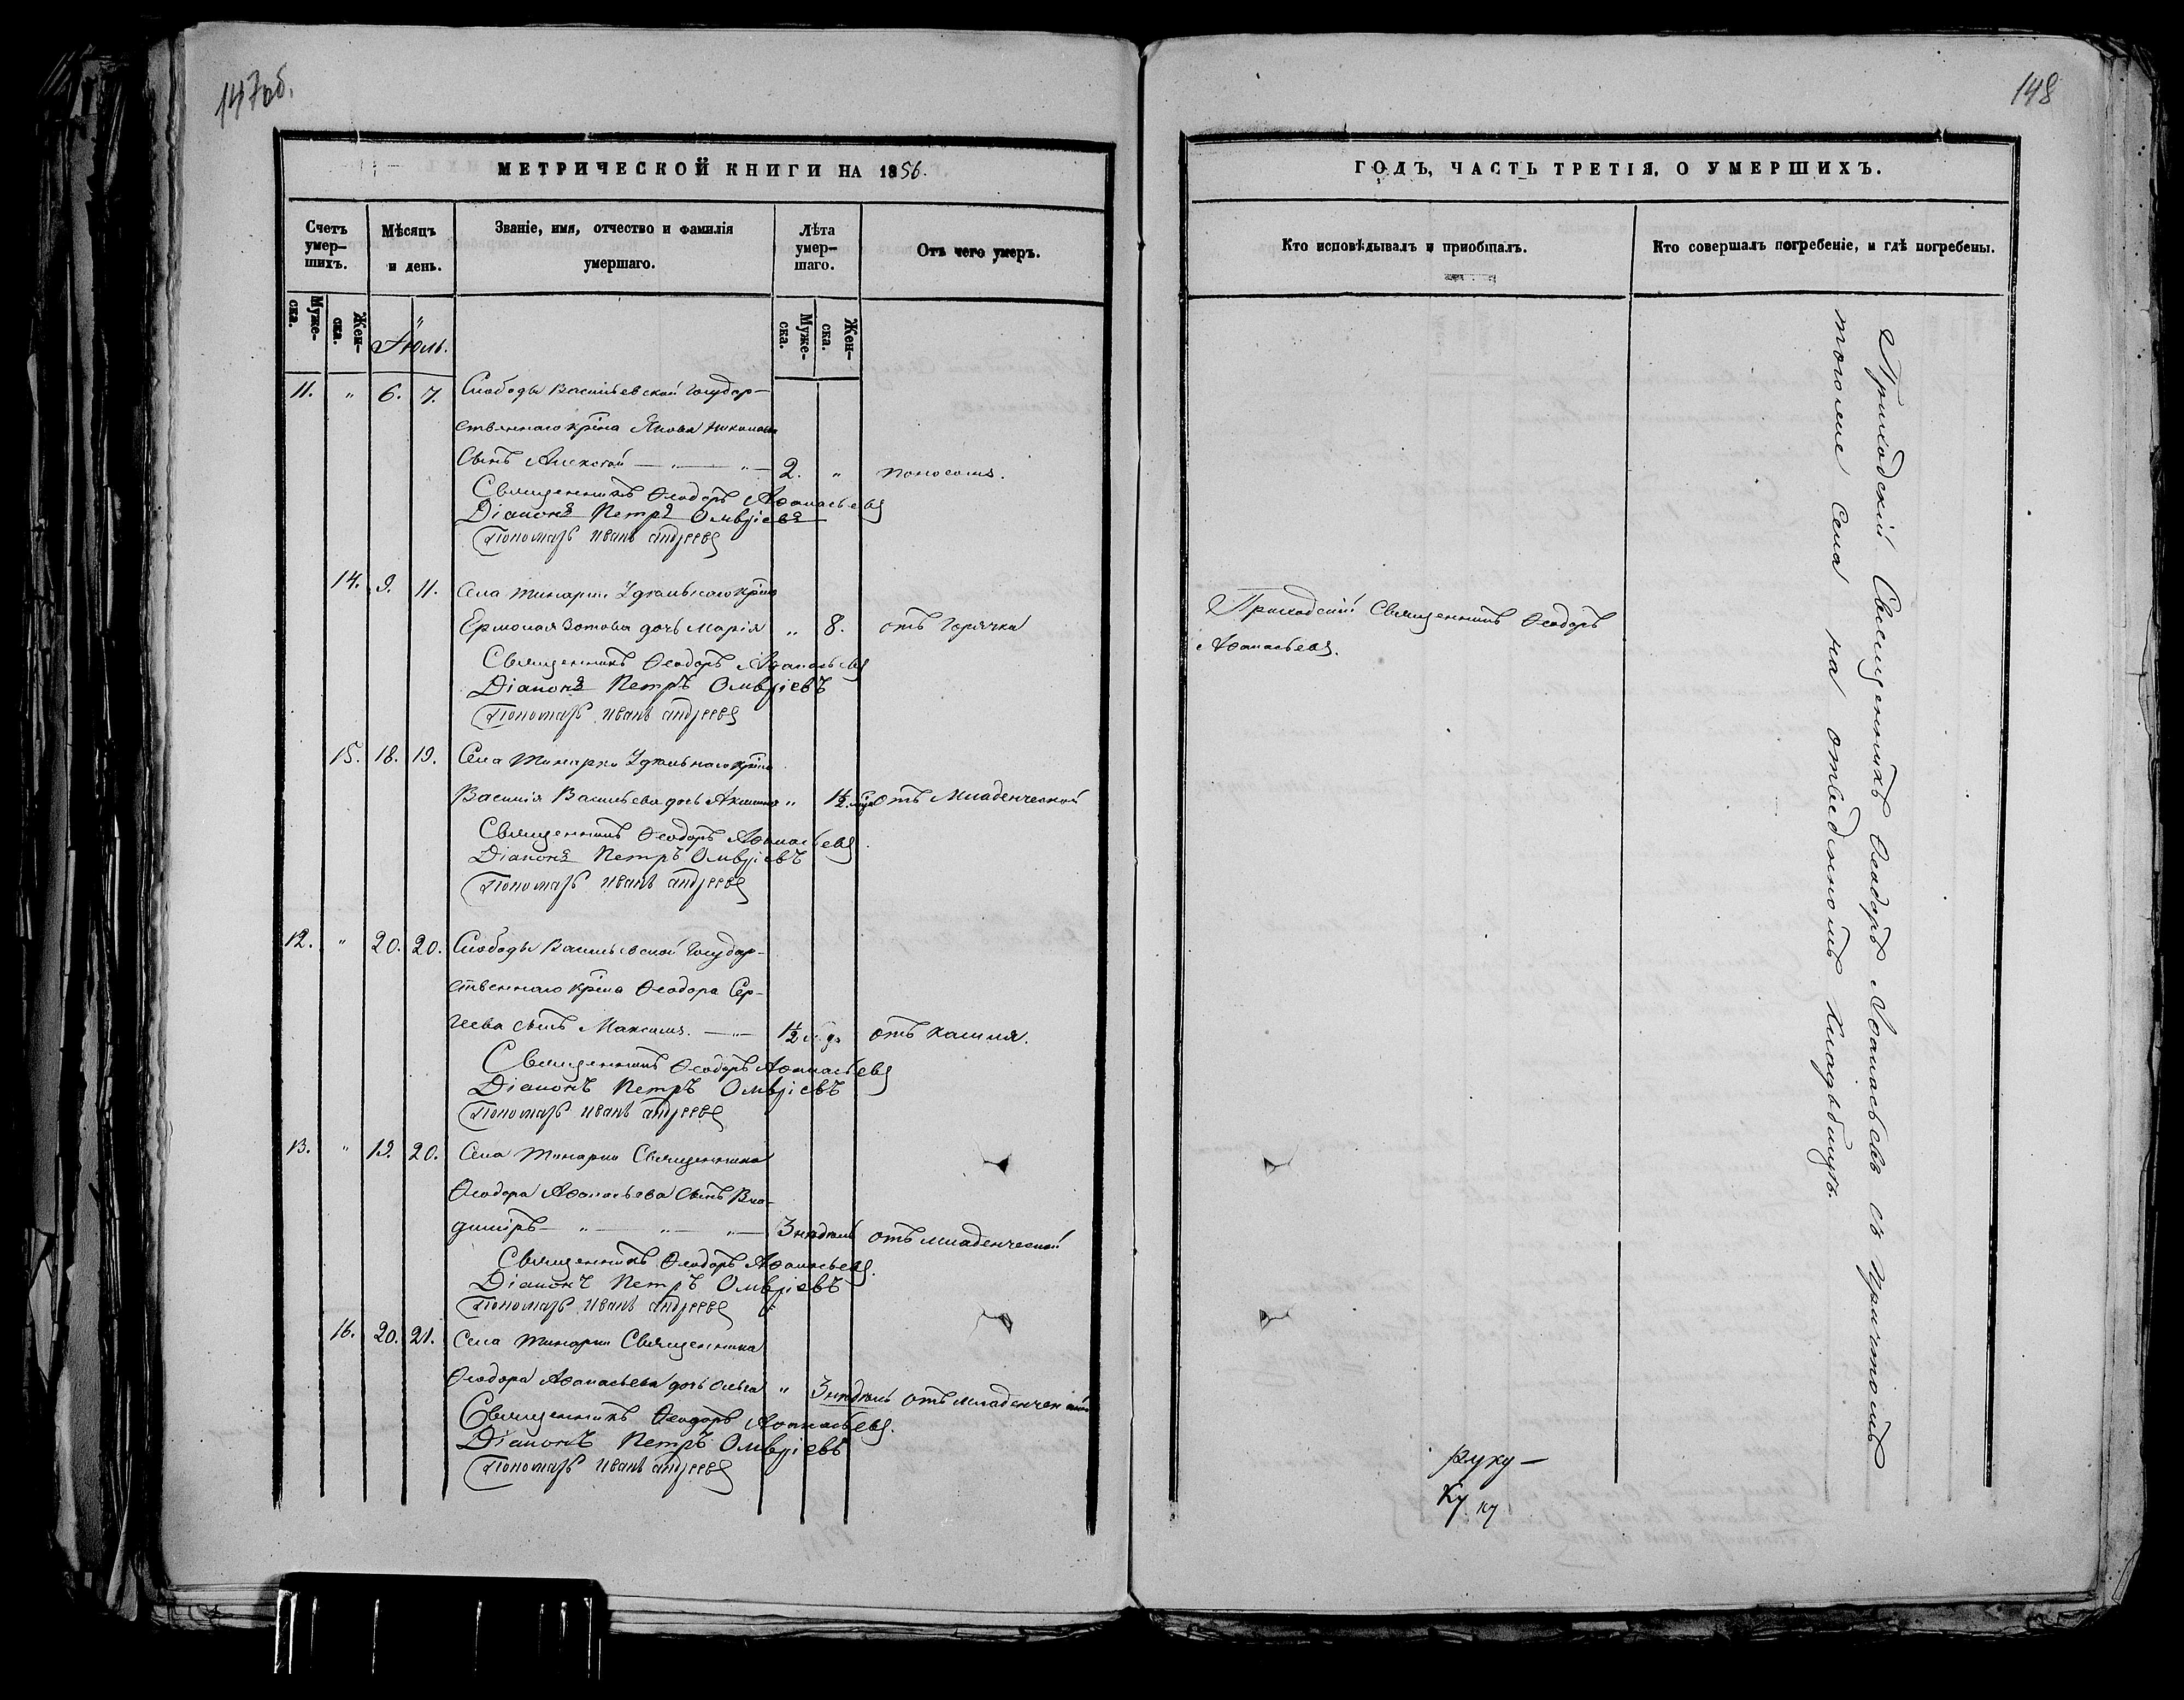 147об.
МЕТРИЧЕСКОЙ КНИГИ НА 1856.
Счетъ умер-шихъ.
Мѣсяцъ и день.
Званіе, имя, отчество и фамилія умершаго.
Лѣта умер-шаго.
Отъ чего умеръ.
Муже-ска.
Жен-ска.
Іюль.
Муже-ска.
Жен-ска.
11. " 6. 7. Слободы Васильевской Государ-
ственнаго крѣна Якова Николаева
Сынъ Алексѣй — " — " — 2. " поносомъ.
Священникъ Ѳеодоръ Аѳанасьевъ
Діаконъ Петръ Омвріевъ
Пономарь Иванъ Андреевъ
14. 9. 11. Села Тинарки Удѣльнаго крѣна
Ермолая Зотова дочь Марія " 8. отъ горячки
Священникъ Ѳеодоръ Аѳанасьевъ
Діаконъ Петръ Омвріевъ
Пономарь Иванъ Андреевъ
15. 18. 19. Села Тинарки Удѣльнаго крѣна
Василія Васильева дочь " 1½ отъ младенческой
Священникъ Ѳеодоръ Аѳанасьевъ
Діаконъ Петръ Омвріевъ
Пономарь Иванъ Андреевъ
12. " 20. 20. Слободы Васильевской Государ-
ственнаго крѣна Ѳеодора Сер-
геева сынъ Максимъ. — " — 1½ отъ кашля.
Священникъ Ѳеодоръ Аѳанасьевъ
Діаконъ Петръ Омвріевъ
Пономарь Иванъ Андреевъ
13. " 19. 20. Села Тинарки Священника
Ѳеодора Аѳанасьева сынъ Вла-
диміръ — " — " — " — 3 недѣль отъ младенческой
Священникъ Ѳеодоръ Аѳанасьевъ.
Діаконъ Петръ Омвріевъ
Пономарь Иванъ Андреевъ
16. 20. 21. Села Тинарки Священника
Ѳеодора Аѳанасьева дочь Ольга " 3 недѣль отъ младенческой
Священникъ Ѳеодоръ Аѳанасьевъ.
Діаконъ Петръ Омвріевъ
Пономарь Иванъ Андреевъ
148
ГОДЪ, ЧАСТЬ ТРЕТІЯ, О УМЕРШИХЪ.
Кто исповѣдывалъ и пріобщалъ.
Кто совершалъ погребеніе, и гдѣ погребены.
Приходскій Священникъ Ѳеодоръ
Аѳанасьевъ.
Приходскій Священникъ Ѳеодоръ Аѳанасьевъ съ причтомъ
тогоже Села на отведенномъ кладбищѣ.
руку —